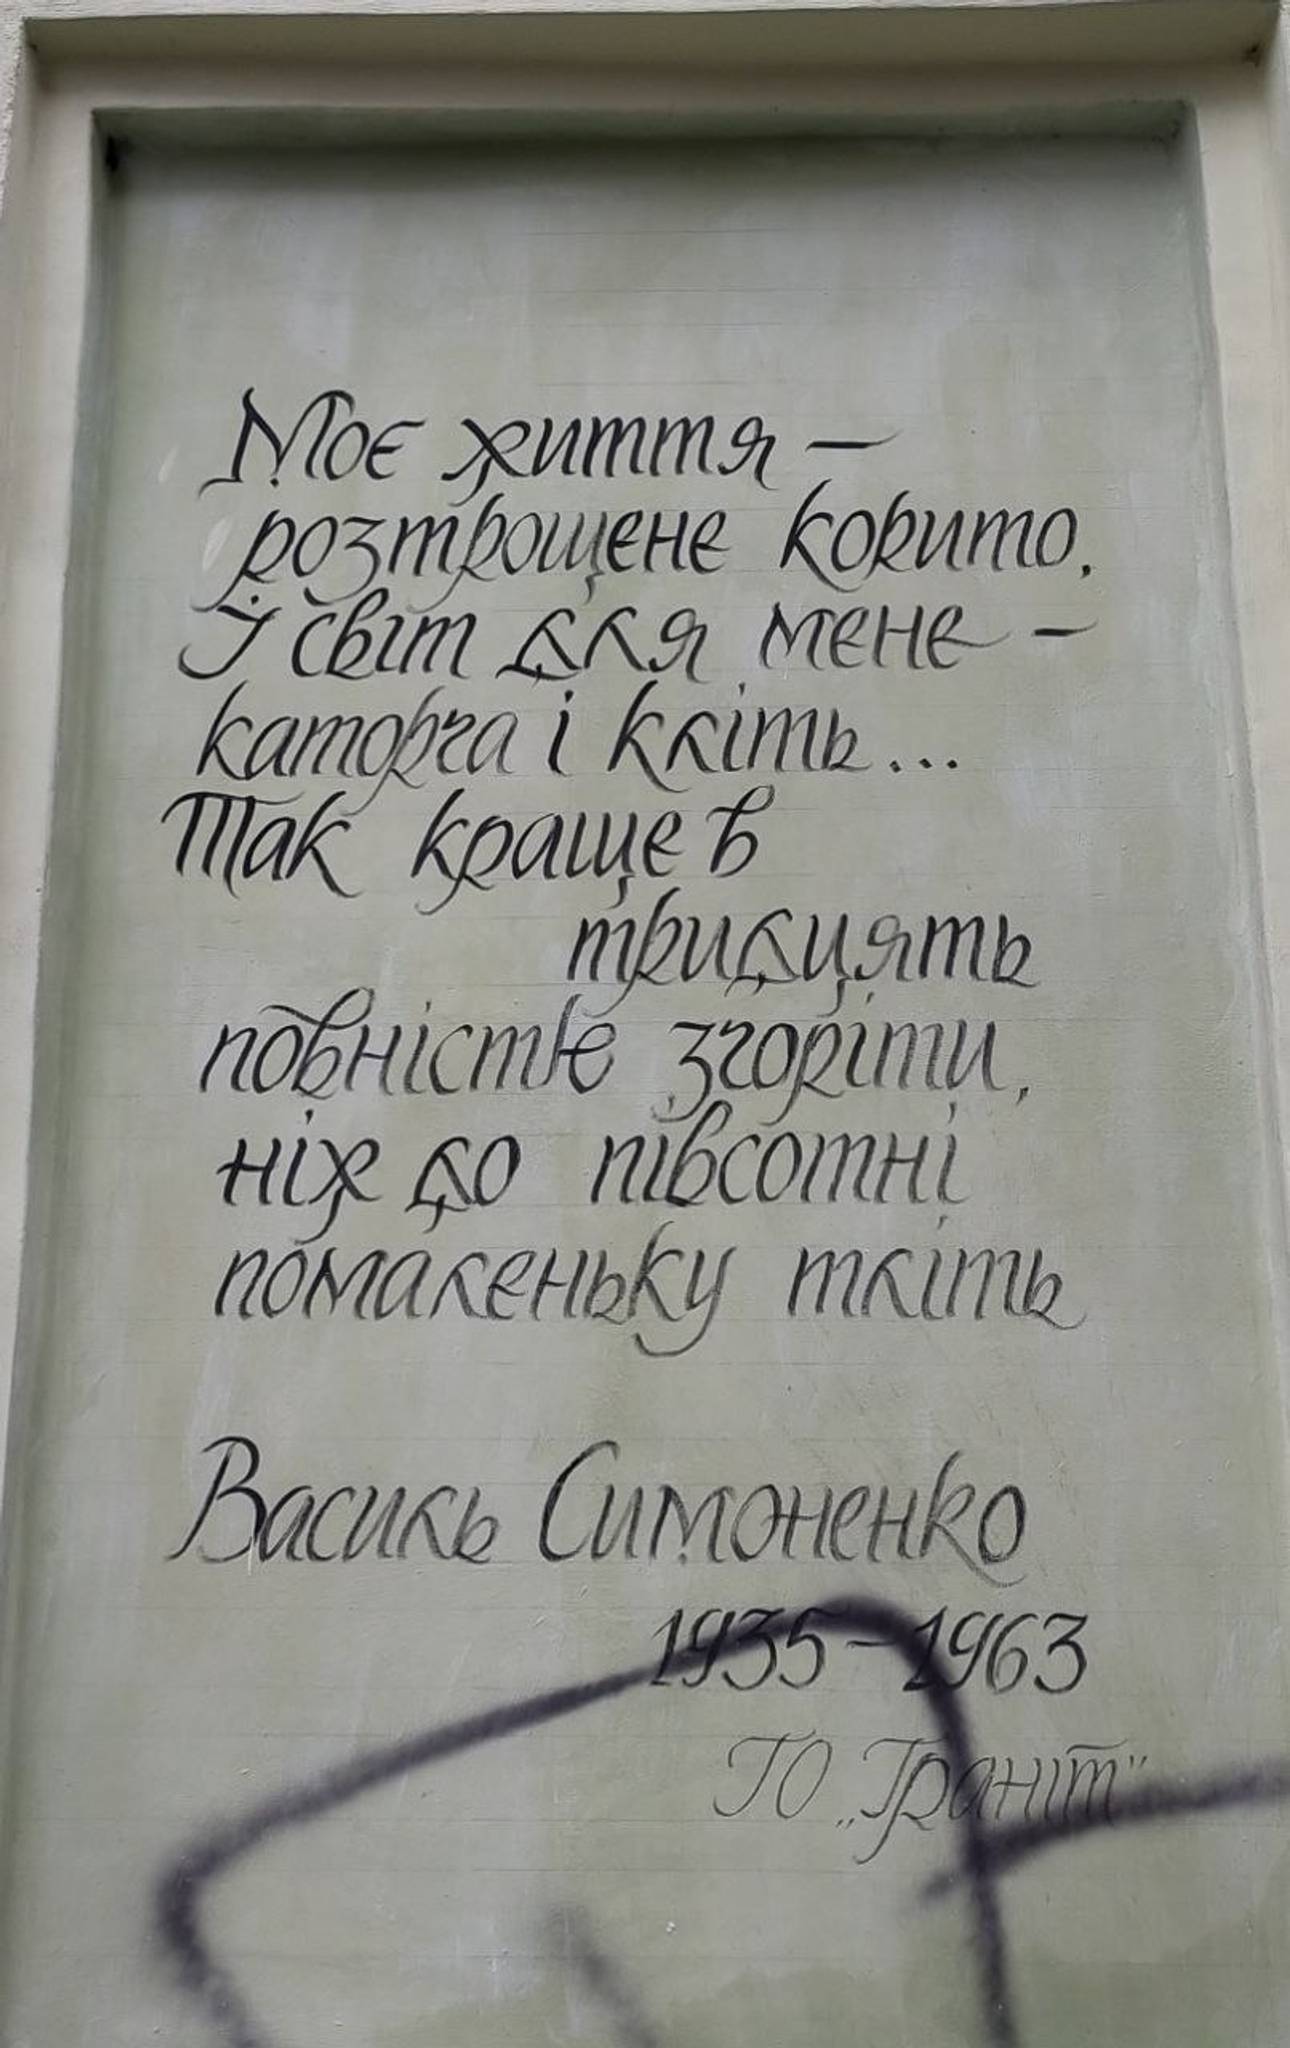 Моє життя –
розтрощене корито.
І світ для мене –
каторга і кліть...
Так краще в
тридцять
повністю згоріти,
ніж до півсотні
помаленьку тліть
Василь Симоненко
1935 – 1963
ГО „Граніт"